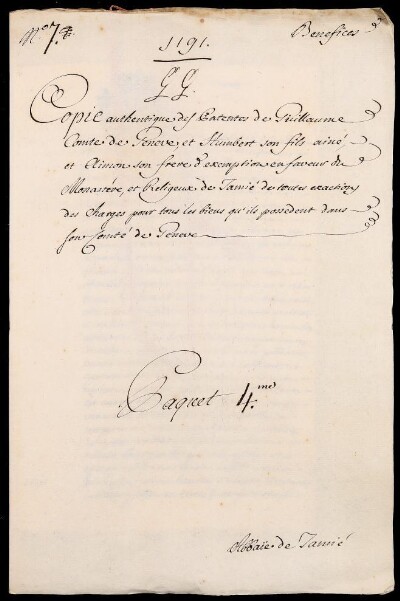 N.º 7.
Benefices
1191.
G G.
Copie authentique des Patentes de Guillaume
Comte de Geneve, et Humbert son fils ainé,
et Aimon son frere, d'exemption en faveur du
Monastére, et Religieux de Tamié de toutes exactions
des charges pour tous les biens qu'ils possedent dans
son Comté de Geneve
Paquet 4.me
Abbaïe de Tamié